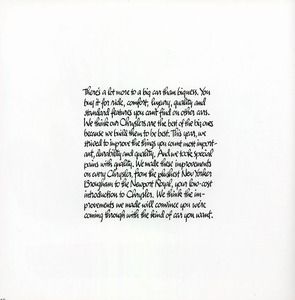 There's a lot more to a big car than bigness. You
buy it for ride, comfort, luxury, quality and
standard features you can't find on other cars.
We think our Chryslers are the best of the big ones
because we build them to be best. This year, we
strived to improve the things you count most import-
ant, durability and quality. And we took special
pains with quality. We made these improvements
on every Chrysler, from the plushest New Yorker
Brougham to the Newport Royal, your low-cost
introduction to Chrysler. We think the im-
provements we made will convince you we're
coming through with the kind of car you want.